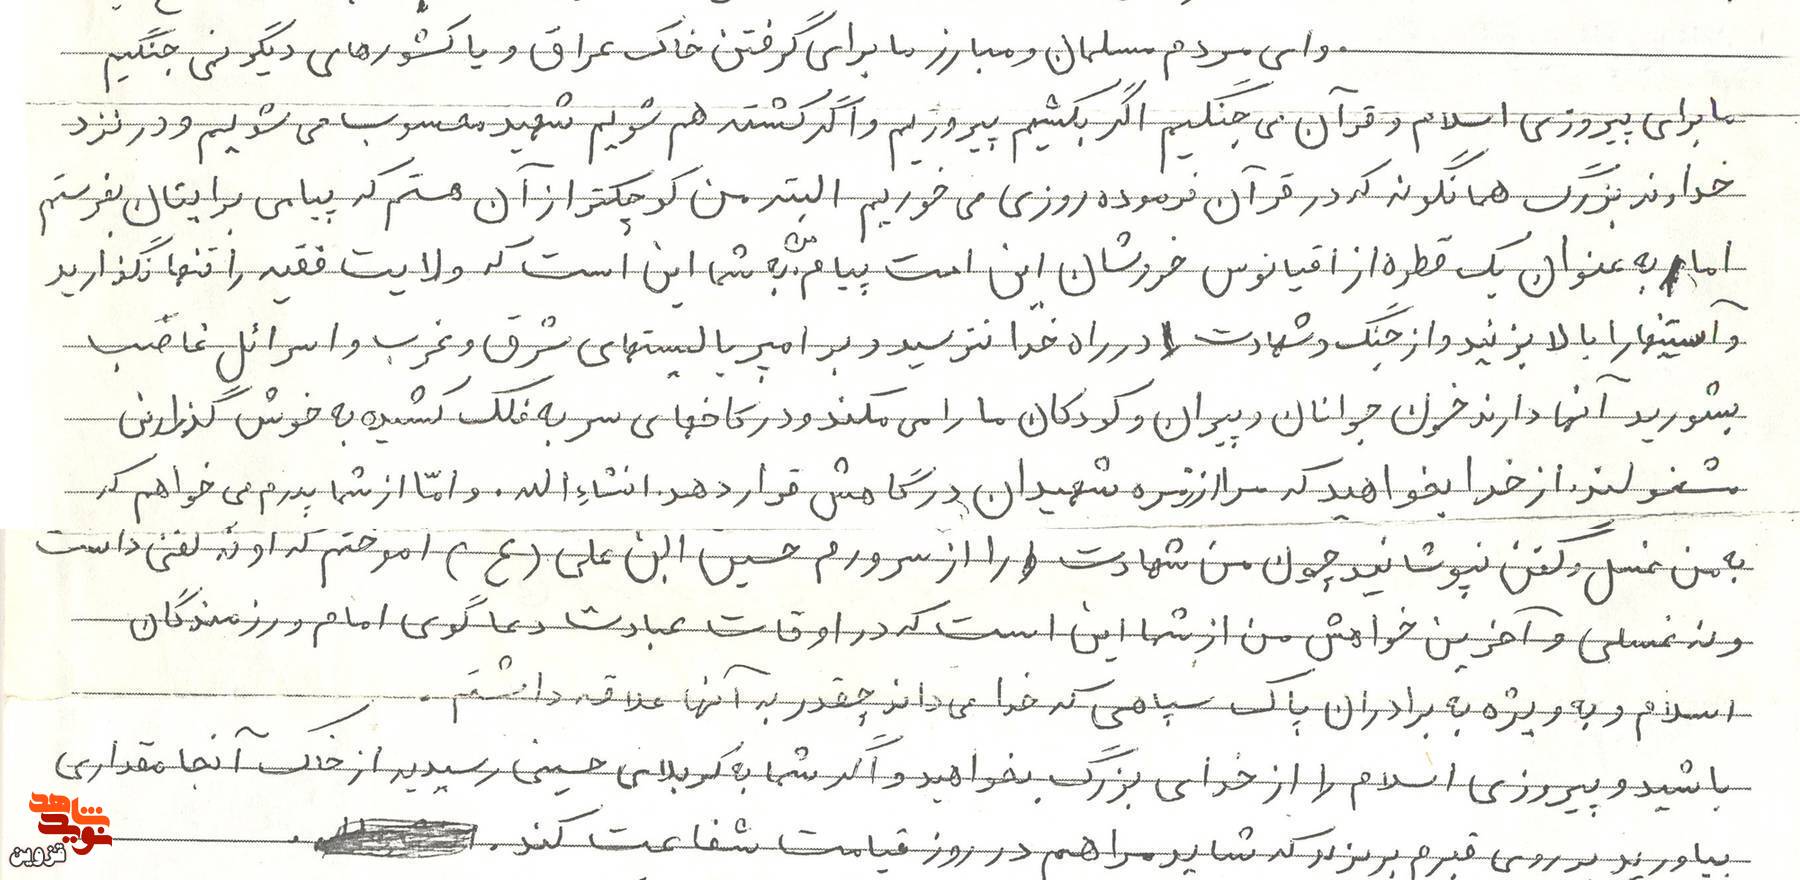 وای مردم مسلمان و مبارز ما برای گرفتن خاک عراق و یا کشورهای دیگر نمی جنگیم
ما برای پیروزی اسلام و قرآن می جنگیم اگر بکشیم پیروزیم و اگر کشته هم شویم شهید محسوب می شویم و در نزد
خداوند بزرگ همانگونه که در قرآن فرموده روزی می خوریم البته من کوچکتر از آن هستم که پیامی برایتان بفرستم
اما به عنوان یک قطره از اقیانوس خروشان این امت پیام من به شما این است که ولایت فقیه را تنها نگذارید
و آستینها را بالا بزنید و از جنگ و شهادت در راه خدا نترسید و بر امپریالیستهای شرق و غرب و اسرائل غاصب
بشورید آنها دارند خون جوانان و پیران و کودکان ما را می مکند و در کاخهای سر به فلک کشیده به خوش گذرانی
مشغولند. از خدا بخواهید که مرا از زمره شهیدان درگاهش قرار دهد. انشاءالله. و امّا از شما پدرم می خواهم که
به من غسل و کفن نپوشانید چون من شهادت را از سرورم حسین ابن علی (ع) اموختم که او نه کفنی داشت
و نه غسلی و آخرین خواهش من از شما این است که در اوقات عبادت دعاگوی امام و رزمندگان
اسلام و به ویژه به برادران پاک سپاهی که خدا می داند چقدر به آنها علاقه داشتم.
باشید و پیروزی اسلام را از خدای بزرگ بخواهید و اگر شما به کربلای حسینی رسیدید از خاک آنجا مقداری
بیاورید بر روی قبرم بریزید که شاید مرا هم در روز قیامت شفاعت کند.
نوید شاهد
قزوین